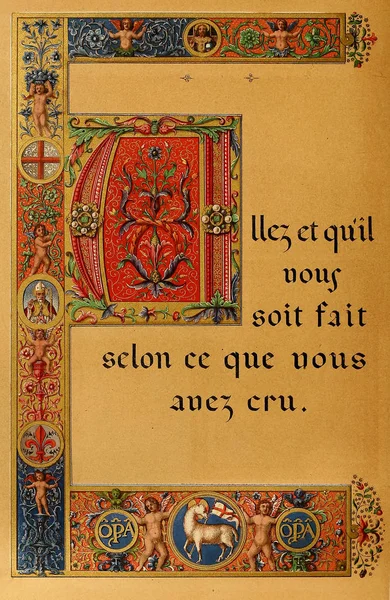 Allez et qu'il
vous
soit fait
selon ce que vous
avez cru.
ÔPA ÔPA